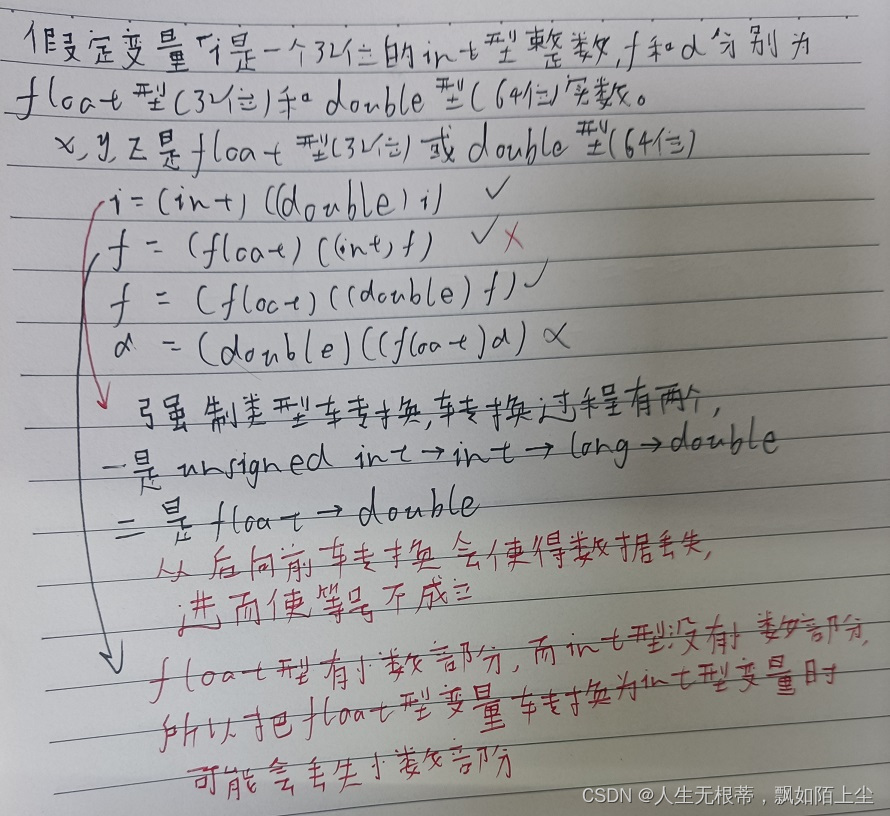 假定变量i是一个32位的int型整数,f和d分别为
float型(32位)和double型(64位)实数。
x,y,z是float型(32位)或double型(64位)
i=(int)((double)i) ✓
f = (float)((int)f) ✓×
f = (float)((double)f) ✓
d = (double)((float)d) ×
强制类型转换,转换过程有两个,
一是unsigned int→int→long→double
二是float→double
从后向前转换会使得数据丢失,
进而使等号不成立
float型有小数部分,而int型没有小数部分,
所以把float型变量转换为int型变量时
可能会丢失小数部分
CSDN @人生无根蒂，飘如陌上尘